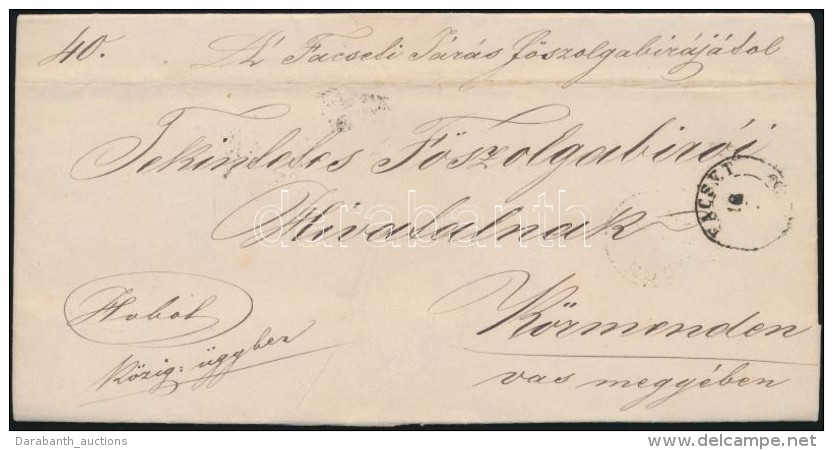 40. A Facseti Járás főszolgabirájától
Tekintetes Főszolgabirói
Hivatalnak
FACSET
18
Körmenden
vas megyében
Hivatal
Közig: ügyben
darabanth
Darabanth_auctions
www.delcampe.net